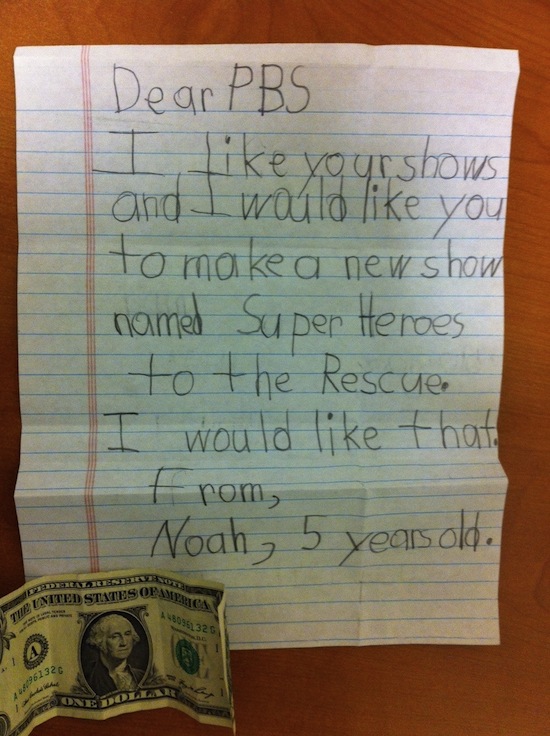 Dear PBS
I like your shows
and I would like you
to make a new show
named Super Heroes
to the Rescue.
I would like that.
From,
Noah, 5 years old.
FEDERAL RESERVE NOTE
THE UNITED STATES OF AMERICA
A
ONE DOLLAR